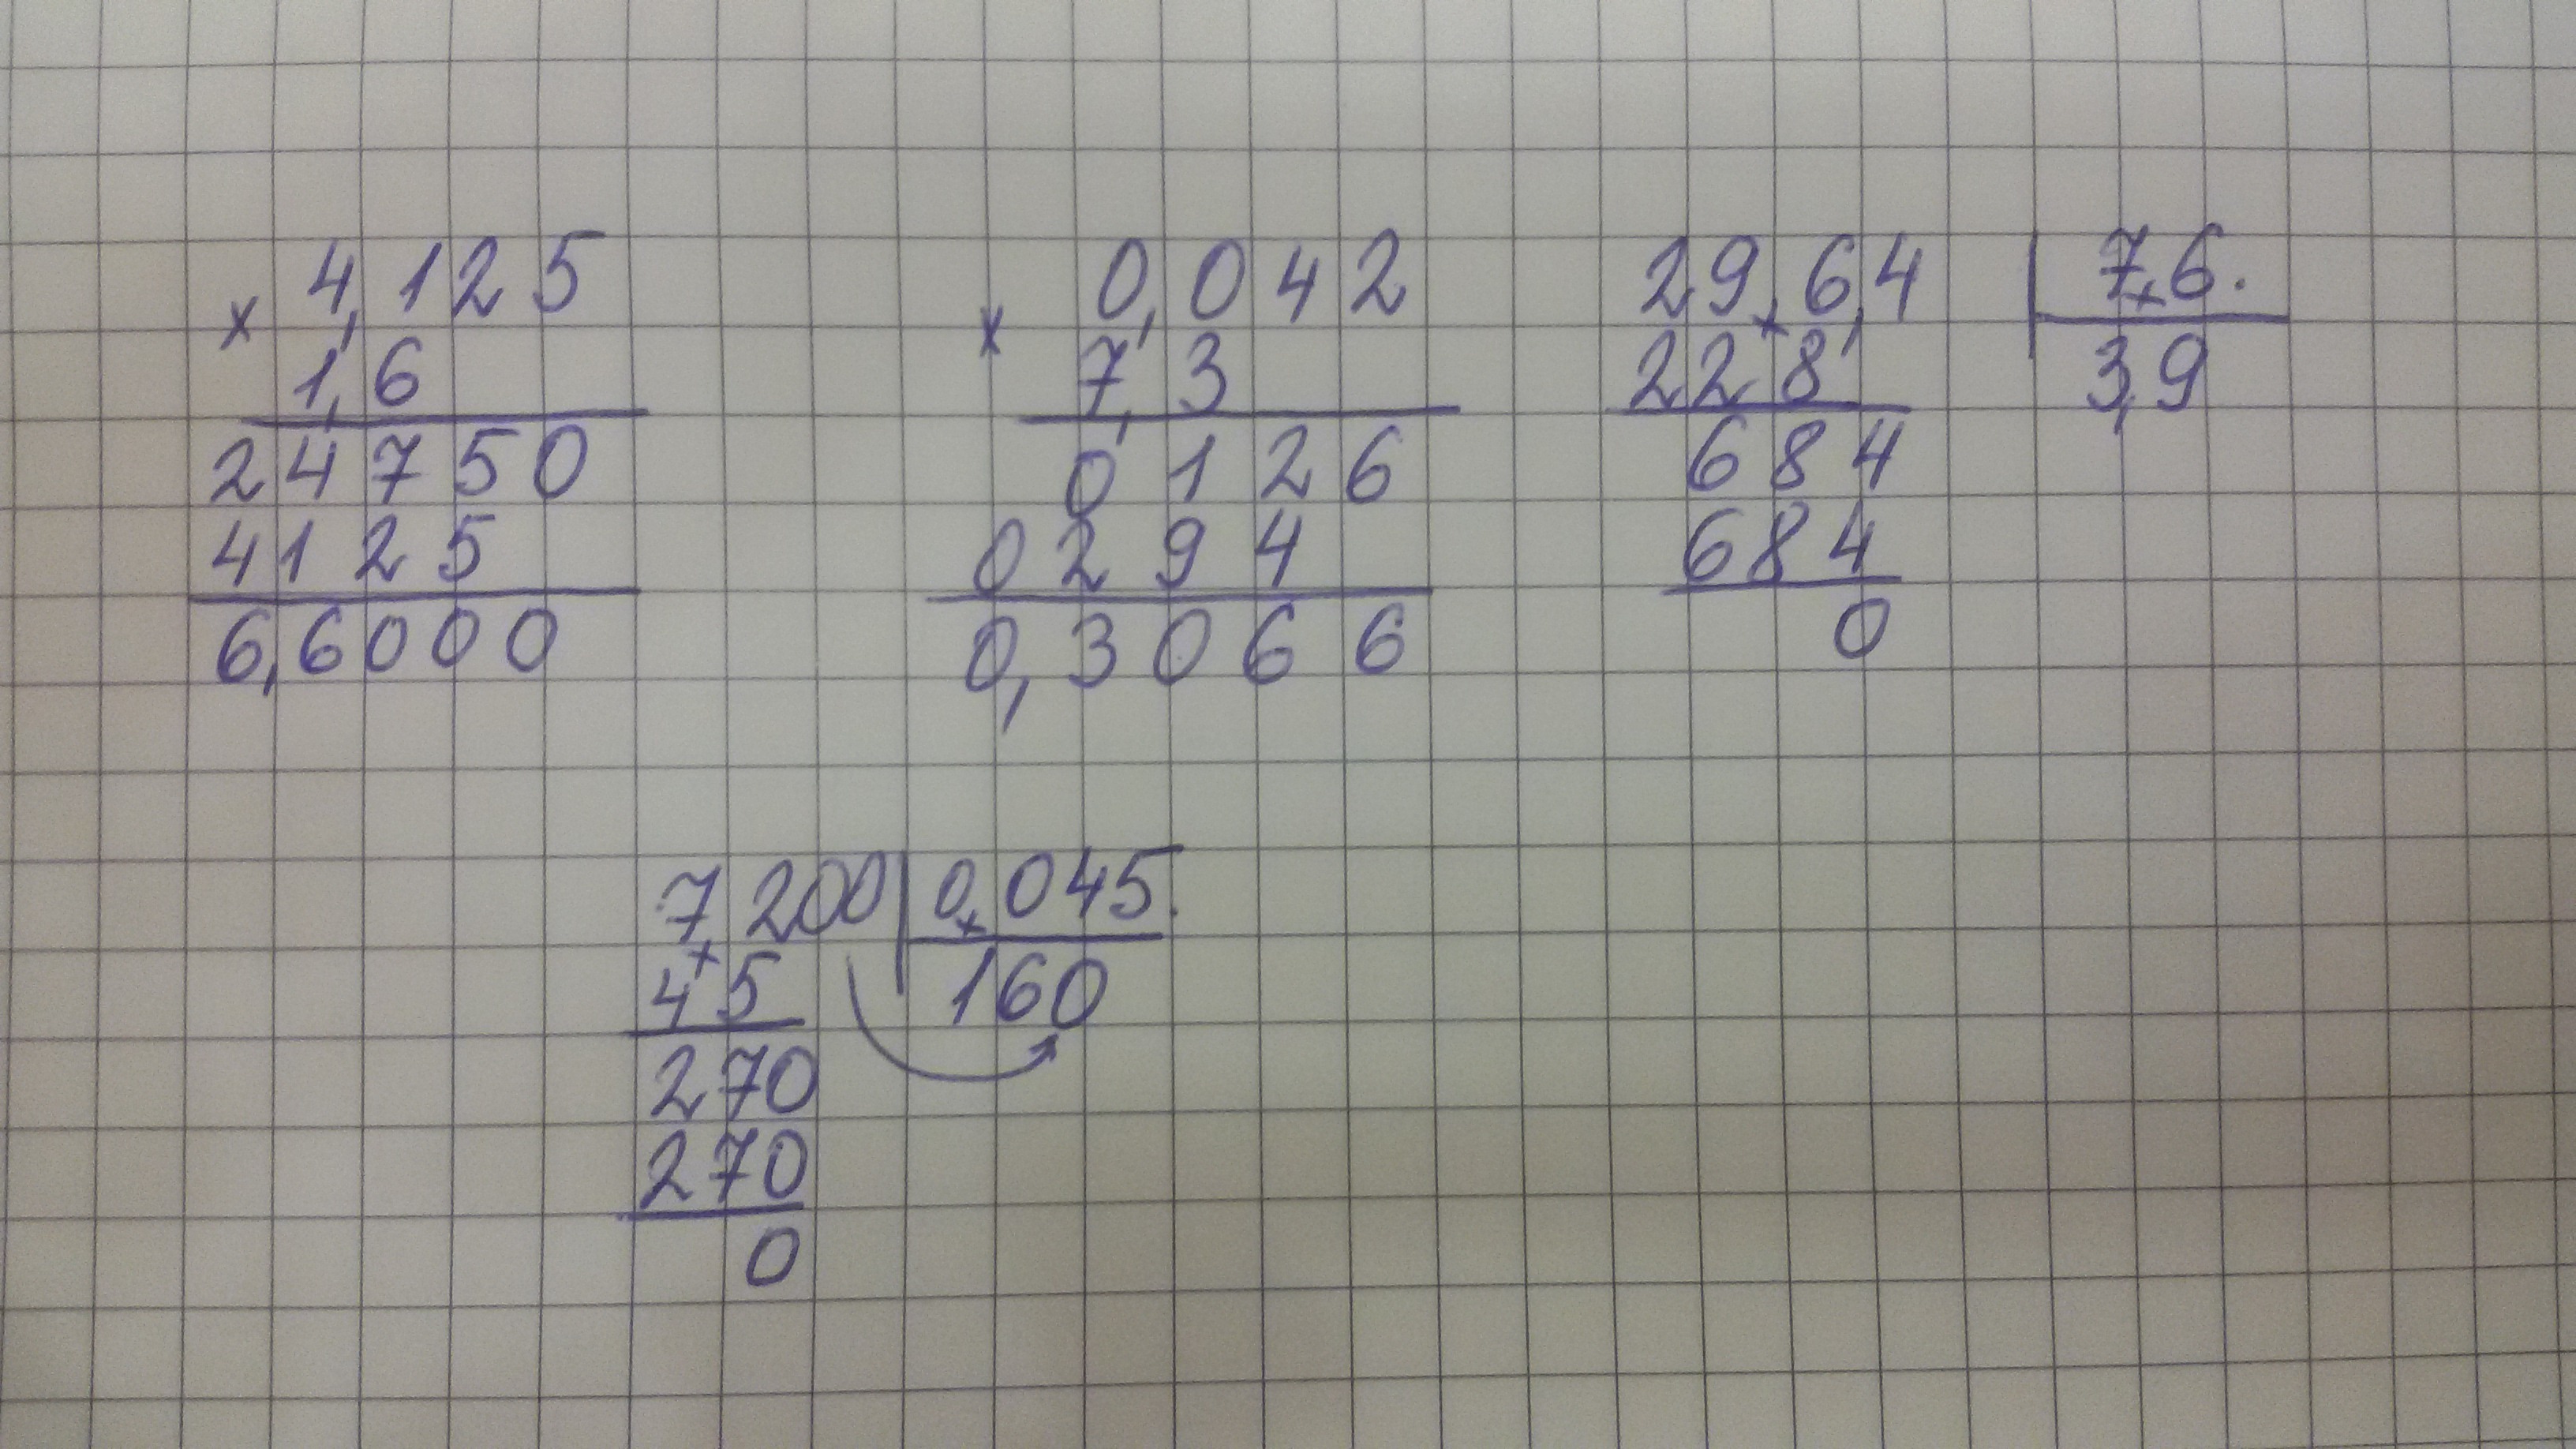 4,125
× 1,6
24750
4125
6,6000
0,042
× 7,3
0126
0294
0,3066
29,6,4 | 7,6.
228 | 3,9
684
684
0
7,200 | 0,045.
45 | 160
270
270
0